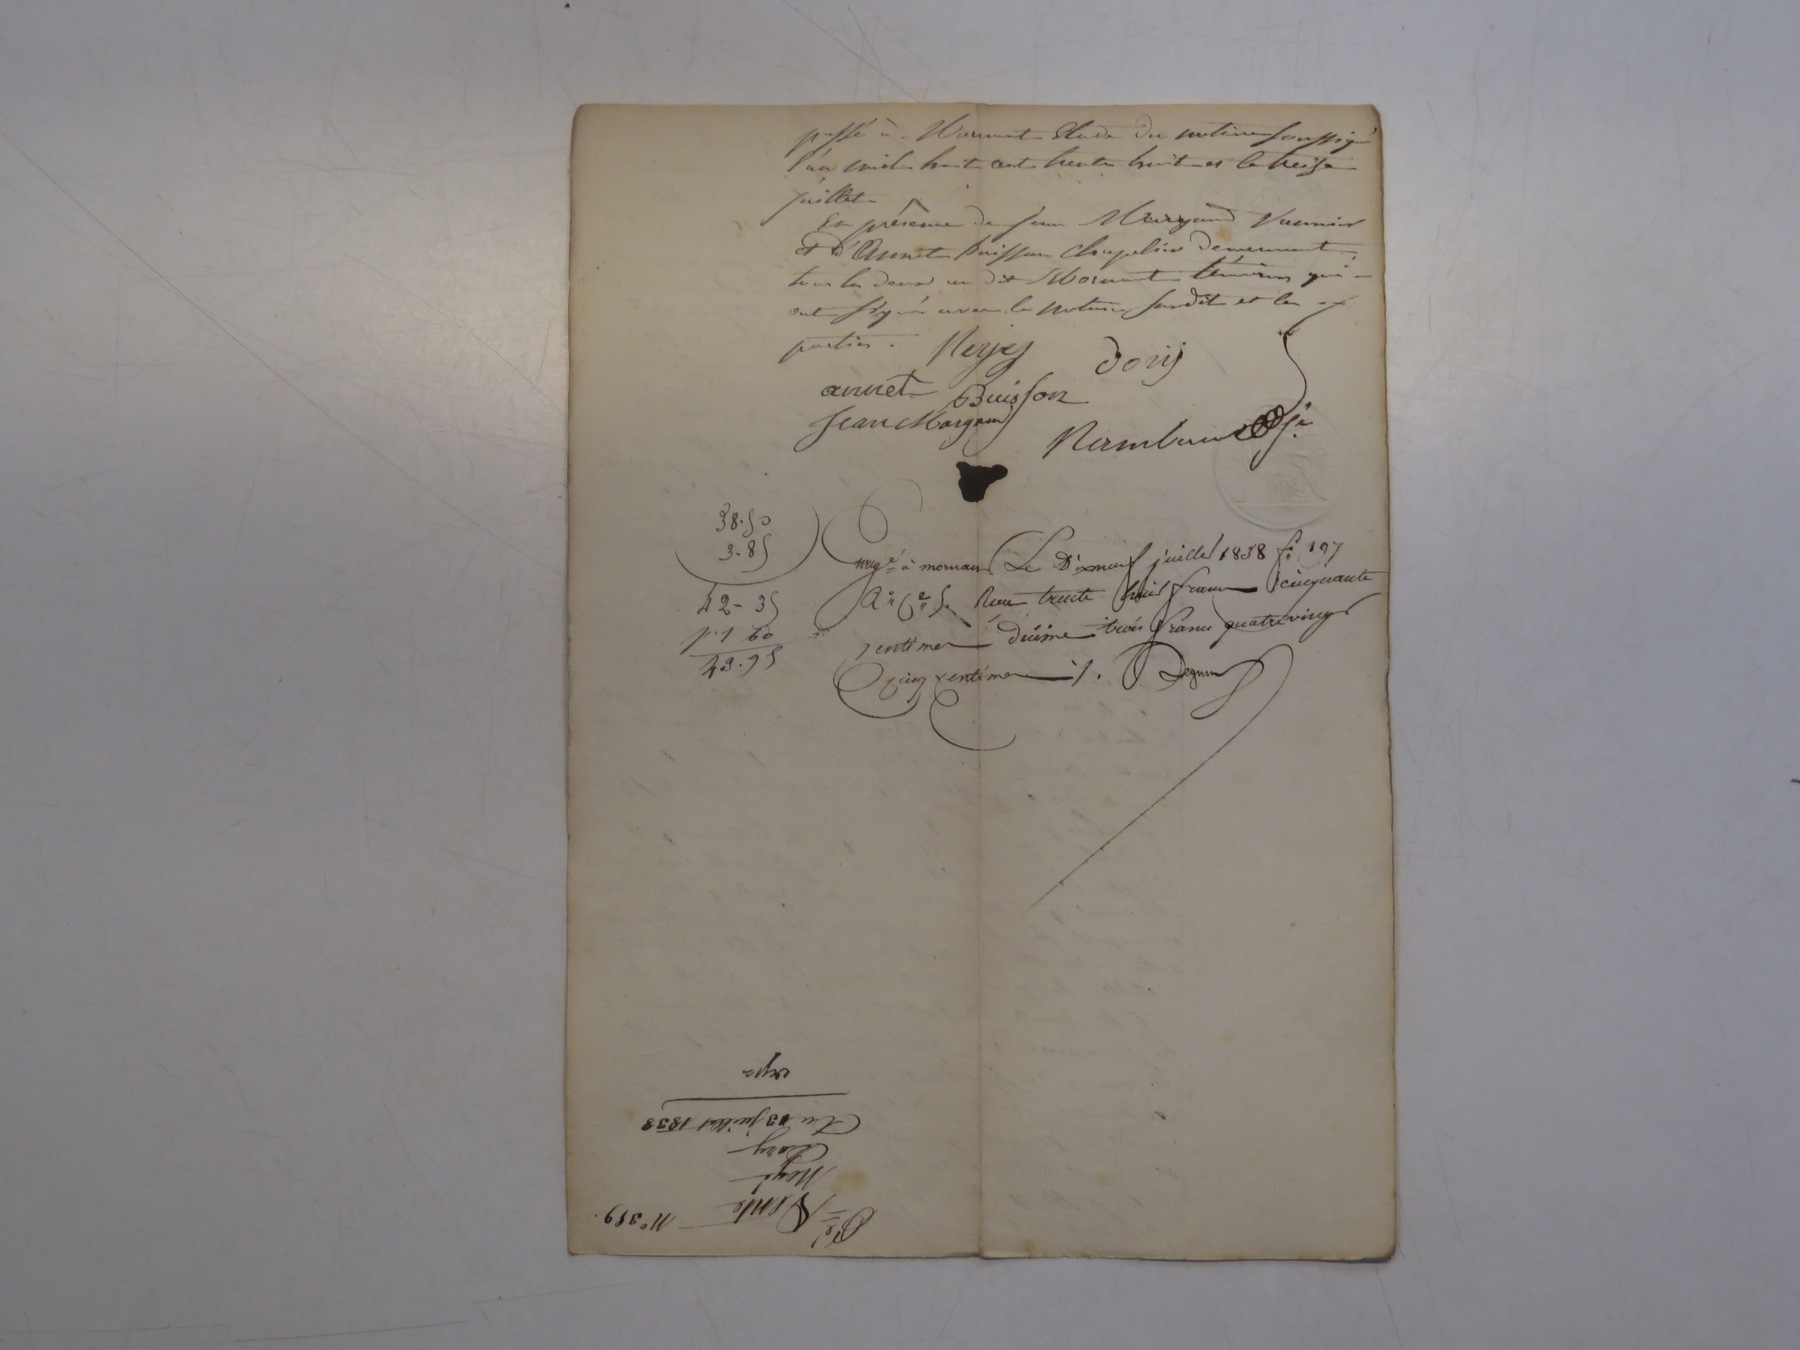 passé à Mornant Etude du notaire soussigné
l'an mil huit cent trente huit et le treize
juillet
En présence de Jean Margand Vannier
et d'Annet Buisson Chapelier demeurant
tous les deux au dit Mornant témoins qui
ont signé avec le notaire susdit et les
parties.
Neyes Dory
annet Buisson
Jean Margand
Rambaud
38.50
3.85
42-35
1 60
43.95
à mornant Le Dixneuf juillet 1838 f° 197
Reçu trente huit francs cinquante
centimes dixime trois francs quatrevingt
cinq centimes
N° 359.
Vente
Neyé
Dory
Du 13 juillet 1838
expé